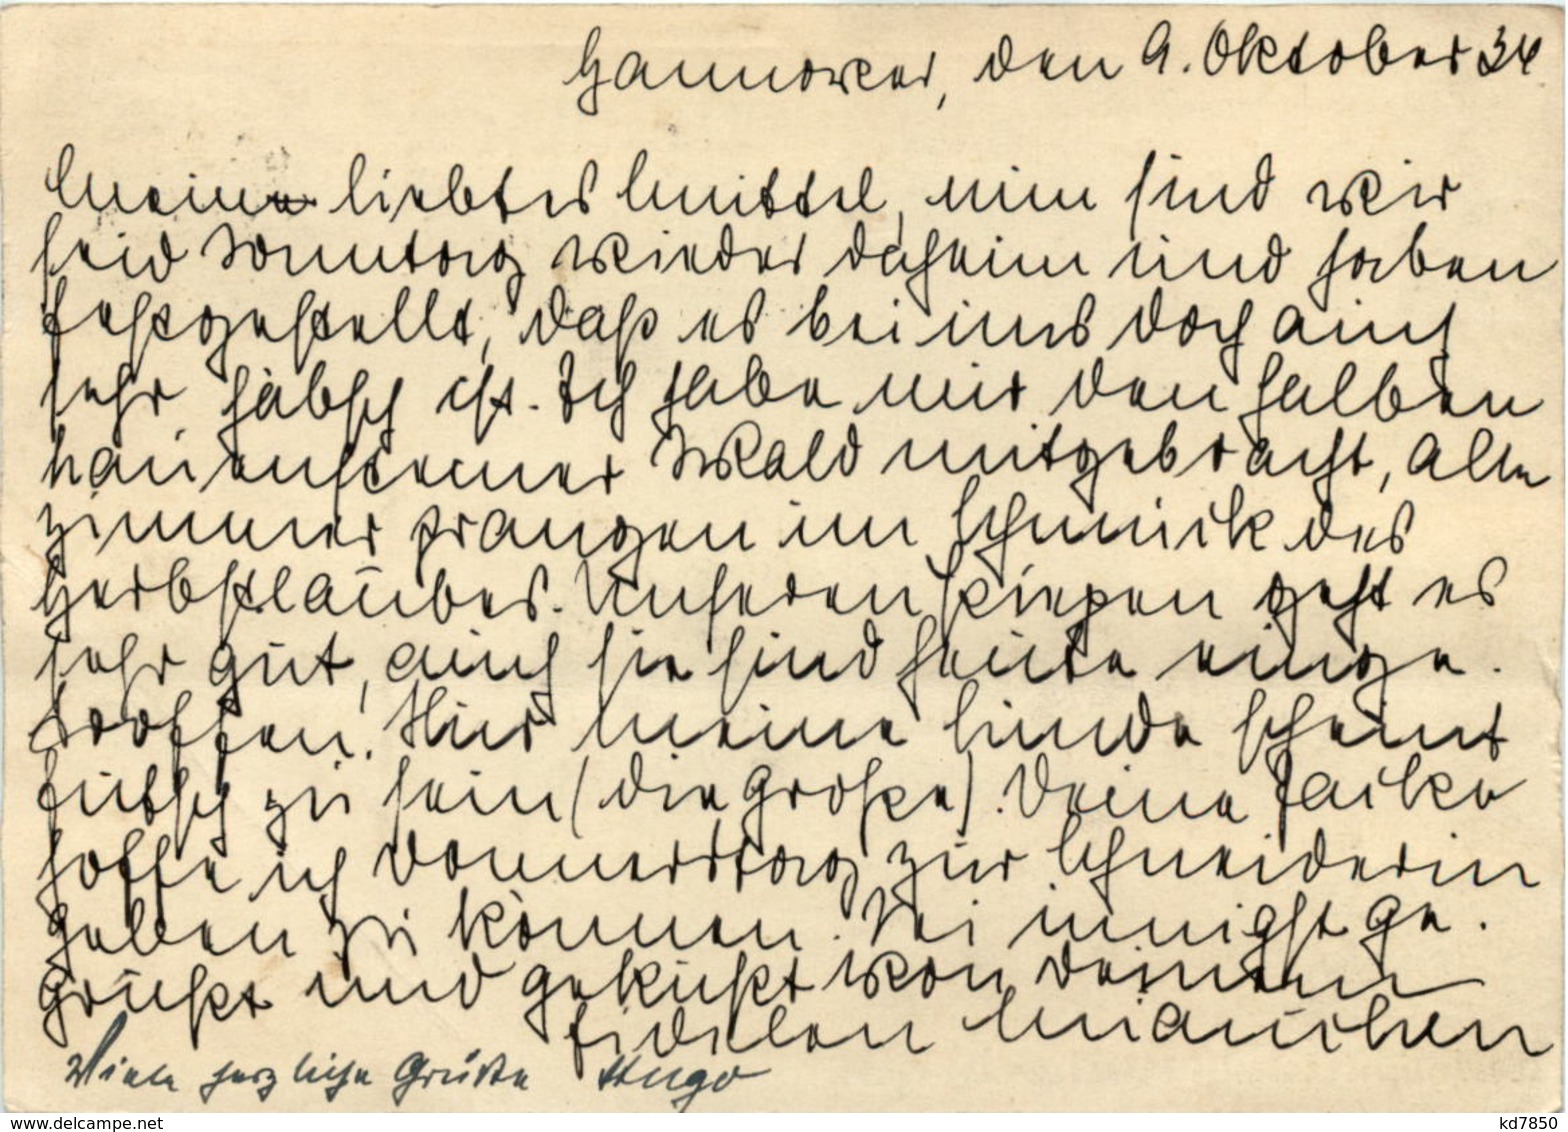 Hannover, den 9. Oktober 34
Mein liebstes Muttel, nun sind wir
seid Sonntag wieder daheim und haben
festgestellt, daß es bei uns doch auch
sehr häbsch ist. Ich habe mir den halben
hauensteiner Wald mitgebracht, alle
Zimmer prangen im Schmuck des
Herbstlaubes. Unseren geht es
sehr gut, auch sie sind heute einge-
troffen. Nur Meine Hunde scheint
hübsch zu sein (die Große). Deine Jacke
hoffe ich Donnerstag zur Schneiderin
geben zu können. Sei innigst ge-
grüßt und geküßt von deinem
fidelen
Viele herzliche Grüße Hugo
kd7850